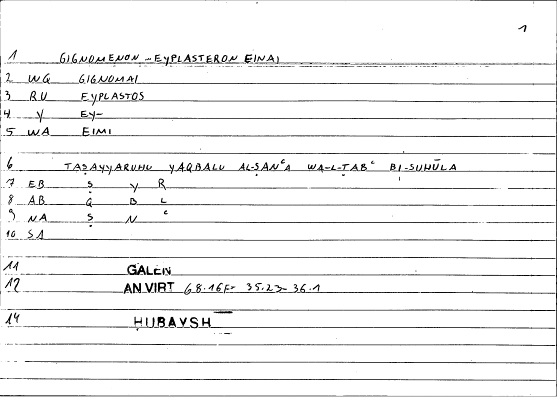 1
1 GIGNOMENON - EYPLASTERON EINAI
2 WQ GIGNOMAI
3 RU EYPLASTOS
4 Y EY-
5 WA EIMI
6 TAṢAYYARUHU YAQBALU AL-ṢANᶜA WA-L-ṬABᶜ BI-SUHŪLA
7 EB Ṣ Y R
8 AB Q B L
9 NA Ṣ N ᶜ
10 SA
11 GALEN
12 AN VIRT 68.16F- 35.23-36.1
14 ḤUBAYSH